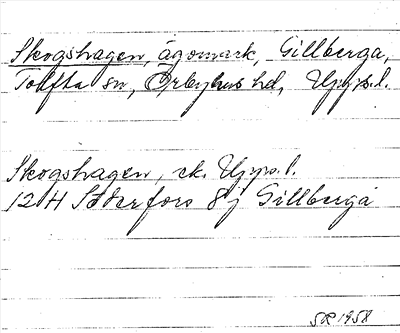 Skogshagen, ägomark, Gillberga,
Tolfta sn, Örbyhus hd, Upps.l.
Skogshagen, ek. Upps.l.
12 H Söderfors 8j Gillberga
SR 1958